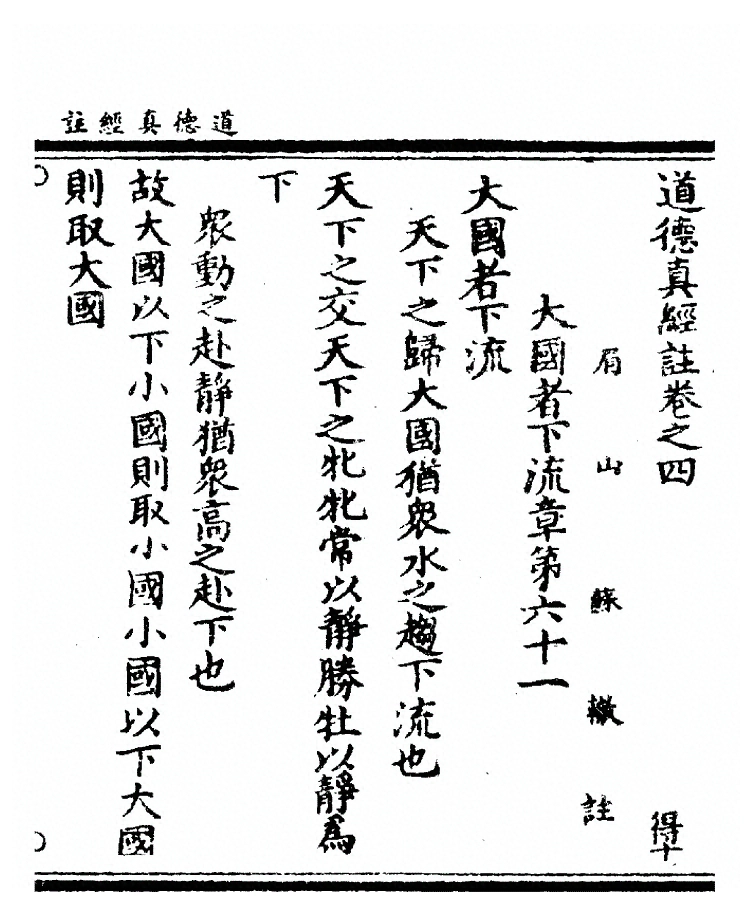 道德真經註
道德真經註卷之四
得十
眉山蘇轍註
大國者下流章第六十一
大國者下流
天下之歸大國猶衆水之趨下流也
天下之交天下之牝牝常以靜勝牡以靜爲
下
衆動之赴靜猶衆高之赴下也
故大國以下小國則取小國小國以下大國
則取大國